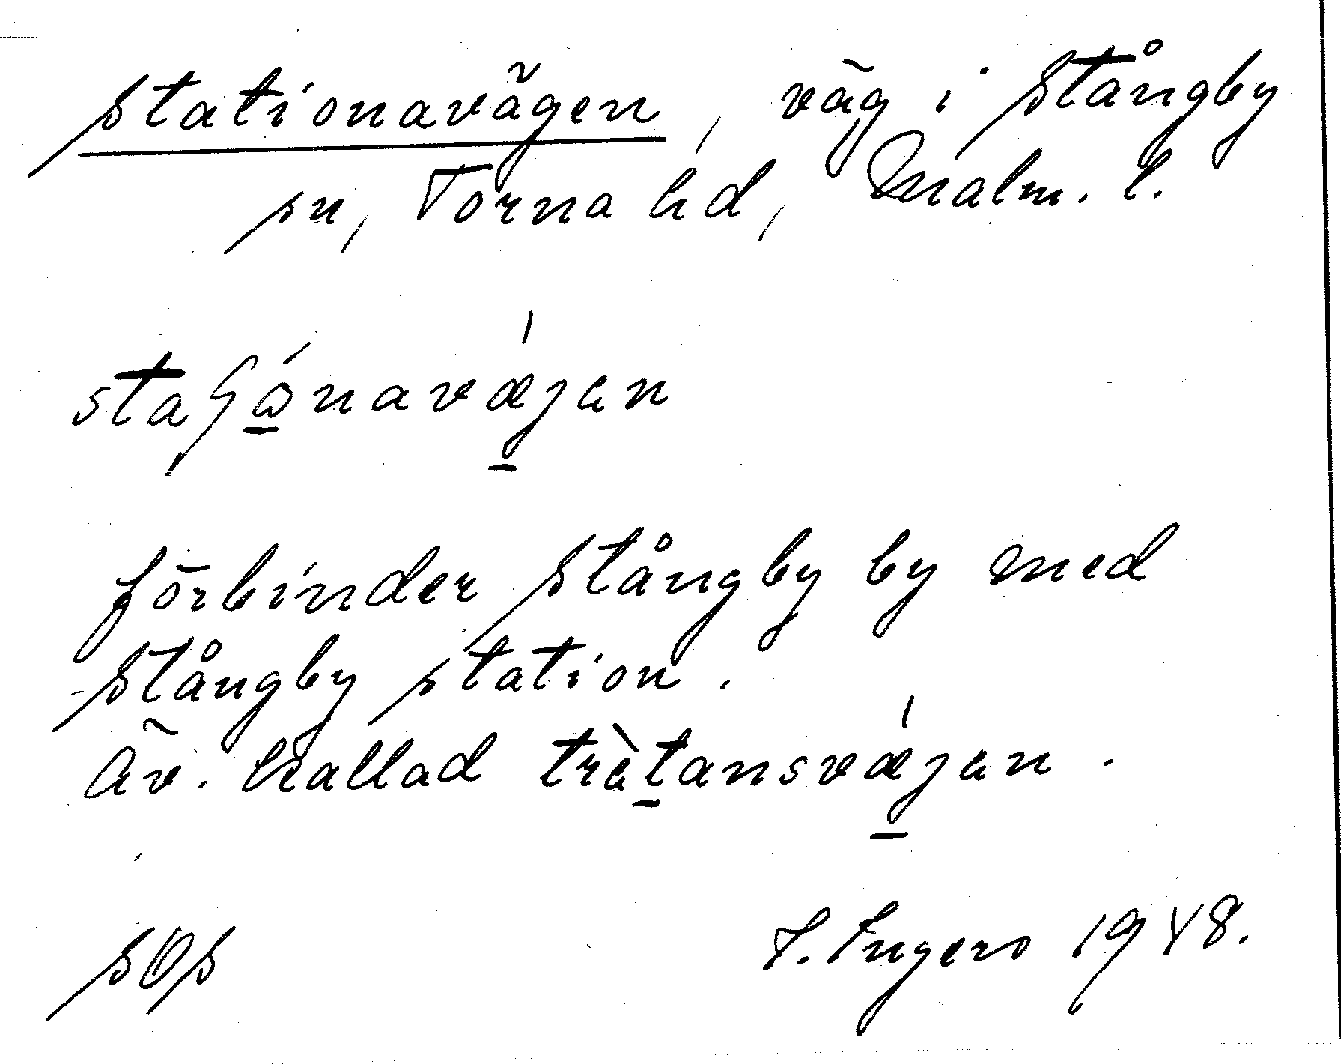 Stationavägen, väg i Stångby
sn, Torna hd, Malm. l.
staʃónavǽjen
förbinder Stångby by med
Stångby station.
Äv. kallad trètansvǽjen.
SOS
I. Ingers 1948.